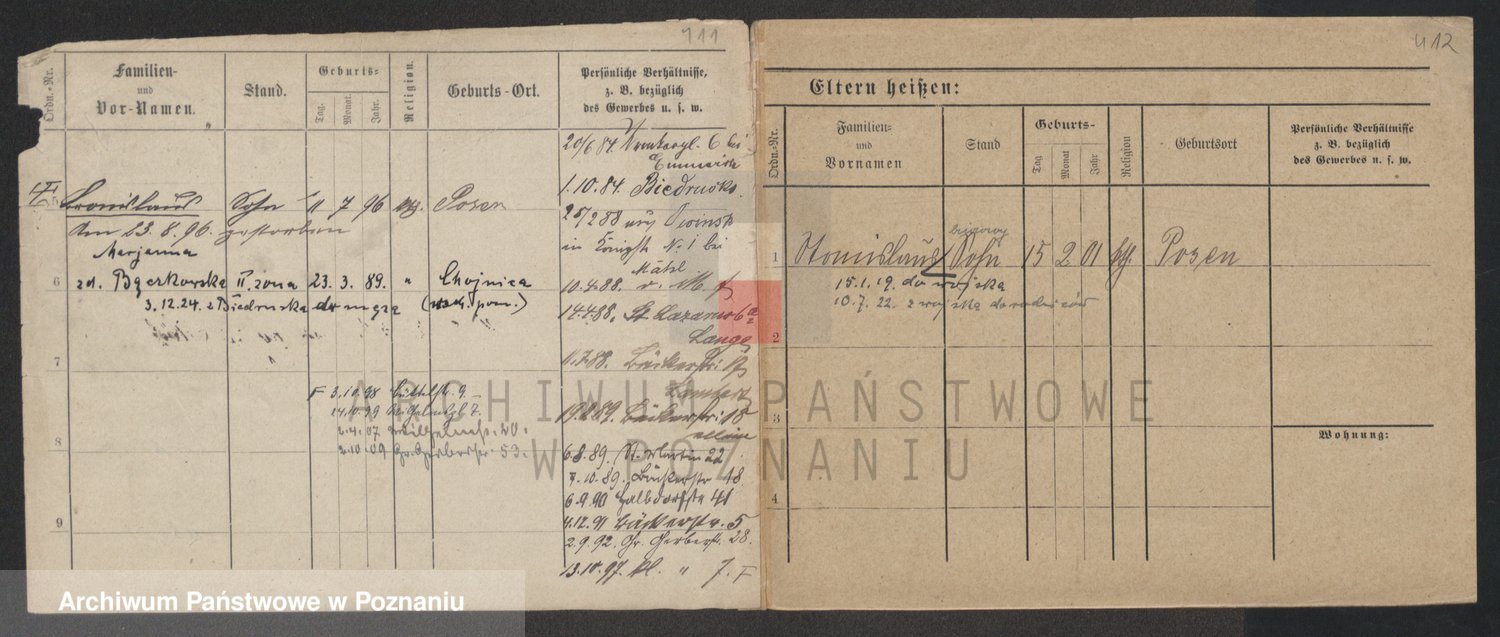 411
Ordn.-Nr.
Familien-
und
Vor-Namen.
Stand.
Geburts-
Tag.
Monat.
Jahr.
Religion.
Geburts-Ort.
Persönliche Verhältnisse,
z. B. bezüglich
des Gewerbes u. s. w.
20/6 84. 6 bei
1.10.84. Biedrusko
Bronislaus Sohn 11 7 96 Posen
Am 23.8.96. gestorben
25/2 88
in № 1 bei
Marjanna
6 zd. II. żona 23. 3. 89. " Chojnica
3.12.24. z Biedruska do męża
10.4.88. v.
14.4.88. St Lazarus 6a
Lange
7
11.7.88. Bäckerstr.
F 3.10.98 Büttelstr. 9.
14.10.99 7.
2.4.07 Wilhelmstr. 20.
2.10.09 Gr. Gerberstr. 53.
Bäckerstr. 18
8
6.8.89. St. Martin 22
7.10.89. Bäckerstr 18
6.9.90 Halbdorfstr 41
9
4.12.91 Bäckerstr. 5
2.9.92. Gr. Gerberstr. 28.
13.10.97. kl. " 7. F
412
Eltern heißen:
Ordn.-Nr.
Familien-
und
Vornamen
Stand
Geburts-
Tag
Monat
Jahr
Religion
Geburtsort
Persönliche Verhältnisse
z. B. bezüglich
des Gewerbes u. s. w.
1 Stanislaus Sohn 15 2 01 kth. Posen
15.1.19. do wojska
10.7.22. z wojska do rodziców
2
3
Wohnung:
4
ARCHIWUM PAŃSTWOWE
W POZNANIU
Archiwum Państwowe w Poznaniu